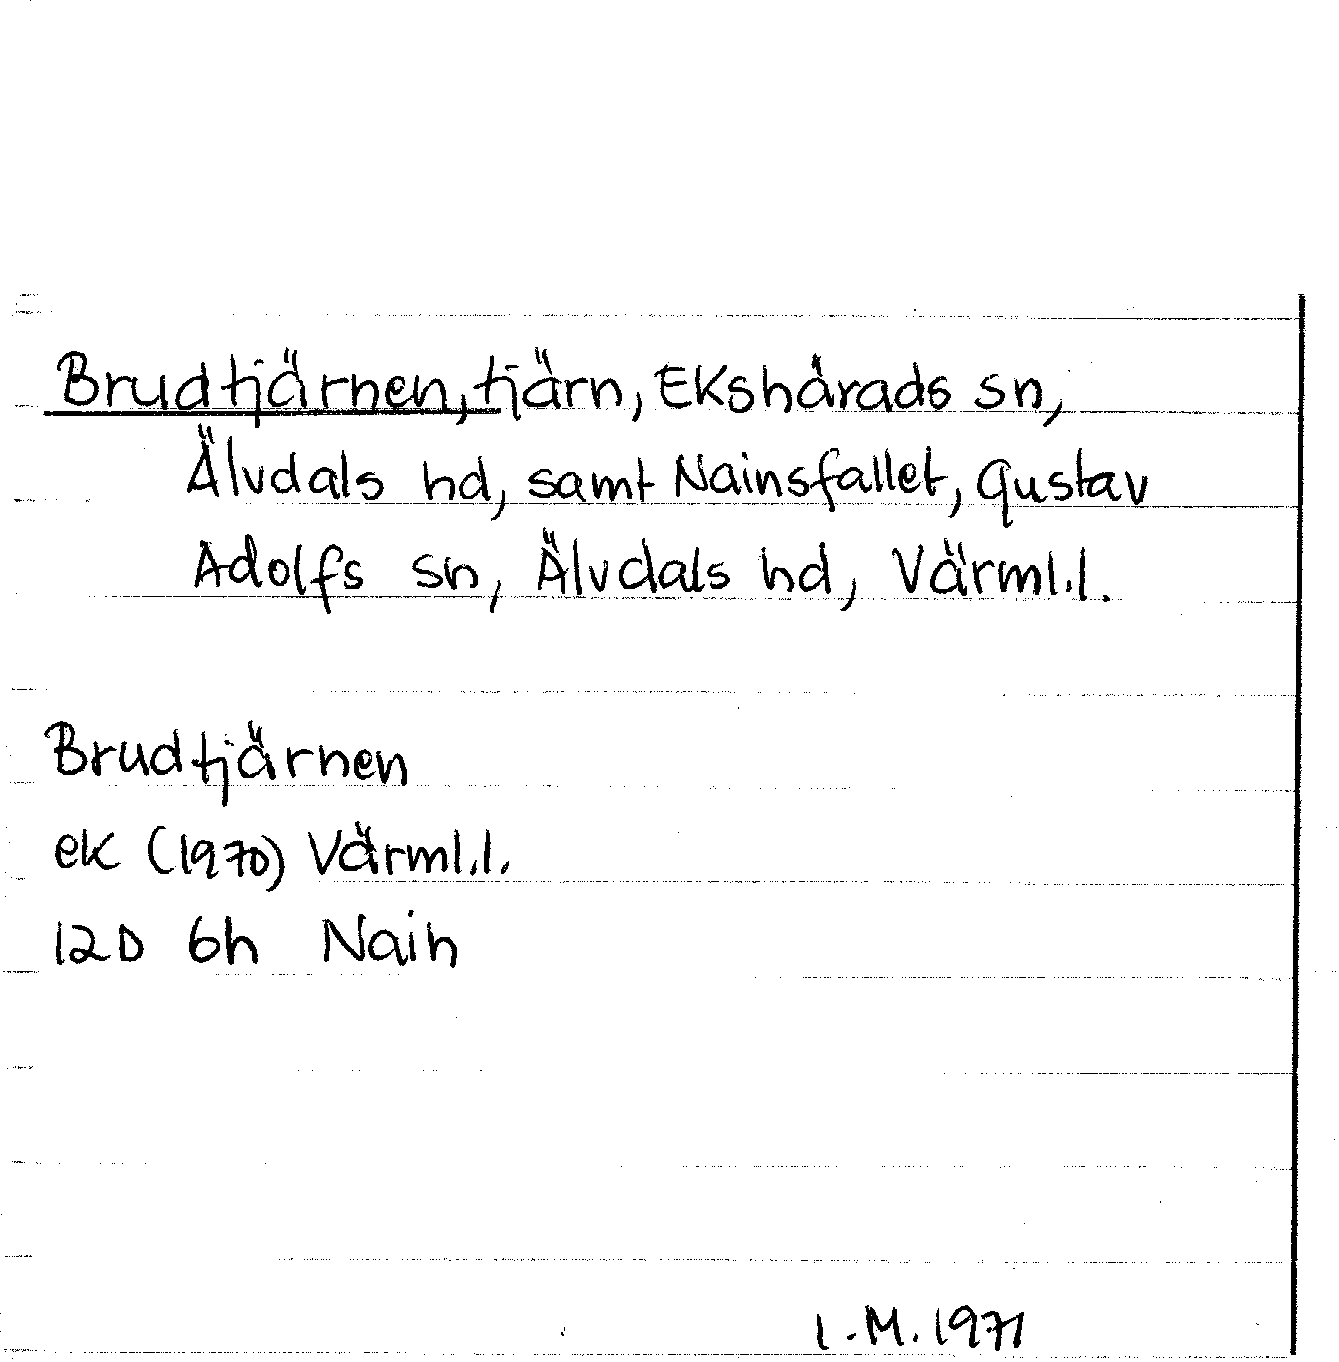 Brudtjärnen, tjärn, Ekshärads sn,
Älvdals hd, samt Nainsfallet, Gustav
Adolfs sn, Älvdals hd, Värml.l.
Brudtjärnen
ek (1970) Värml.l.
12D 6h Nain
I.M. 1971